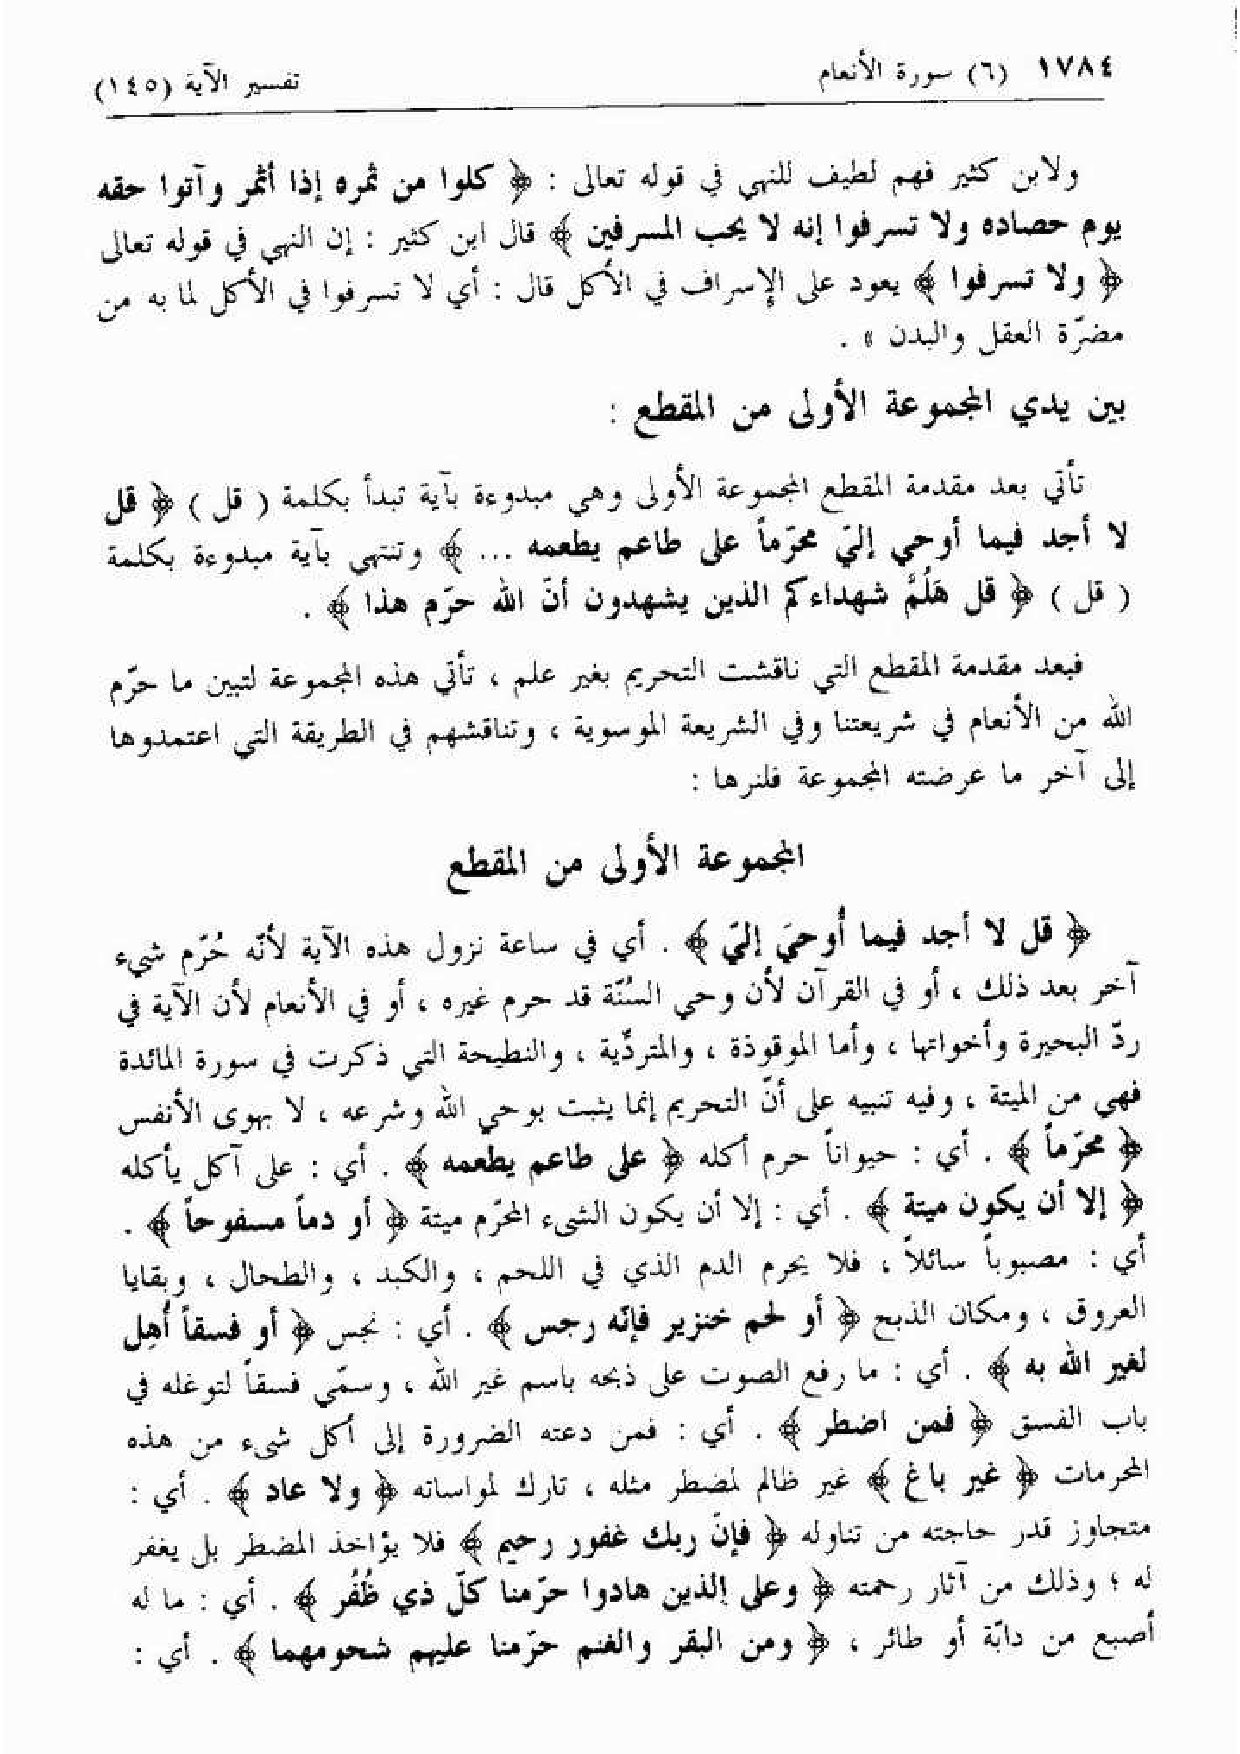 ١٧٨٤ (٦) سورة الأنعام تفسير الآية (١٤٥)
ولابن كثير فهم لطيف للنهي في قوله تعالى : ﴿ كلوا من ثمره إذا أثمر وآتوا حقه
يوم حصاده ولا تسرفوا إنه لا يحب المسرفين ﴾ قال ابن كثير : إن النهي في قوله تعالى
﴿ ولا تسرفوا ﴾ يعود على الإسراف في الأكل قال : أي لا تسرفوا في الأكل لما به من
مضرّة العقل والبدن » .
بين يدي المجموعة الأولى من المقطع :
تأتي بعد مقدمة المقطع المجموعة الأولى وهي مبدوءة بآية تبدأ بكلمة ( قل ) ﴿ قل
لا أجد فيما أوحي إليّ محرّماً على طاعم يطعمه ... ﴾ وتنتهي بآية مبدوءة بكلمة
( قل ) ﴿ قل هَلُمَّ شهداءكم الذين يشهدون أنّ الله حرّم هذا ﴾ .
فبعد مقدمة المقطع التي ناقشت التحريم بغير علم ، تأتي هذه المجموعة لتبين ما حرّم
الله من الأنعام في شريعتنا وفي الشريعة الموسوية ، وتناقشهم في الطريقة التي اعتمدوها
إلى آخر ما عرضته المجموعة فلنرها :
المجموعة الأولى من المقطع
﴿ قل لا أجد فيما أُوحيَ إليّ ﴾ . أي في ساعة نزول هذه الآية لأنّه حُرّم شيء
آخر بعد ذلك ، أو في القرآن لأن وحي السُنّة قد حرم غيره ، أو في الأنعام لأن الآية في
ردّ البحيرة وأخواتها ، وأما الموقوذة ، والمتردِّية ، والنطيحة التي ذكرت في سورة المائدة
فهي من الميتة ، وفيه تنبيه على أنّ التحريم إنما يثبت بوحي الله وشرعه ، لا بهوى الأنفس
﴿ محرّماً ﴾ . أي : حيواناً حرم أكله ﴿ على طاعم يطعمه ﴾ . أي : على آكل يأكله
﴿ إلا أن يكون ميتة ﴾ . أي : إلا أن يكون الشيء المحرّم ميتة ﴿ أو دماً مسفوحاً ﴾ .
أي : مصبوباً سائلاً ، فلا يحرم الدم الذي في اللحم ، والكبد ، والطحال ، وبقايا
العروق ، ومكان الذبح ﴿ أو لحم خنزير فإنّه رجس ﴾ . أي : نجس ﴿ أو فسقاً أُهِل
لغير الله به ﴾ . أي : ما رفع الصوت على ذبحه باسم غير الله ، وسمّي فسقاً لتوغله في
باب الفسق ﴿ فمن اضطر ﴾ . أي : فمن دعته الضرورة إلى أكل شيء من هذه
المحرمات ﴿ غير باغ ﴾ غير ظالم لمضطر مثله ، تارك لمواساته ﴿ ولا عاد ﴾ . أي :
متجاوز قدر حاجته من تناوله ﴿ فإنّ ربك غفور رحيم ﴾ فلا يؤاخذ المضطر بل يغفر
له ؛ وذلك من آثار رحمته ﴿ وعلى الذين هادوا حرّمنا كلّ ذي ظُفُر ﴾ . أي : ما له
أصبع من دابّة أو طائر ، ﴿ ومن البقر والغنم حرّمنا عليهم شحومهما ﴾ . أي :